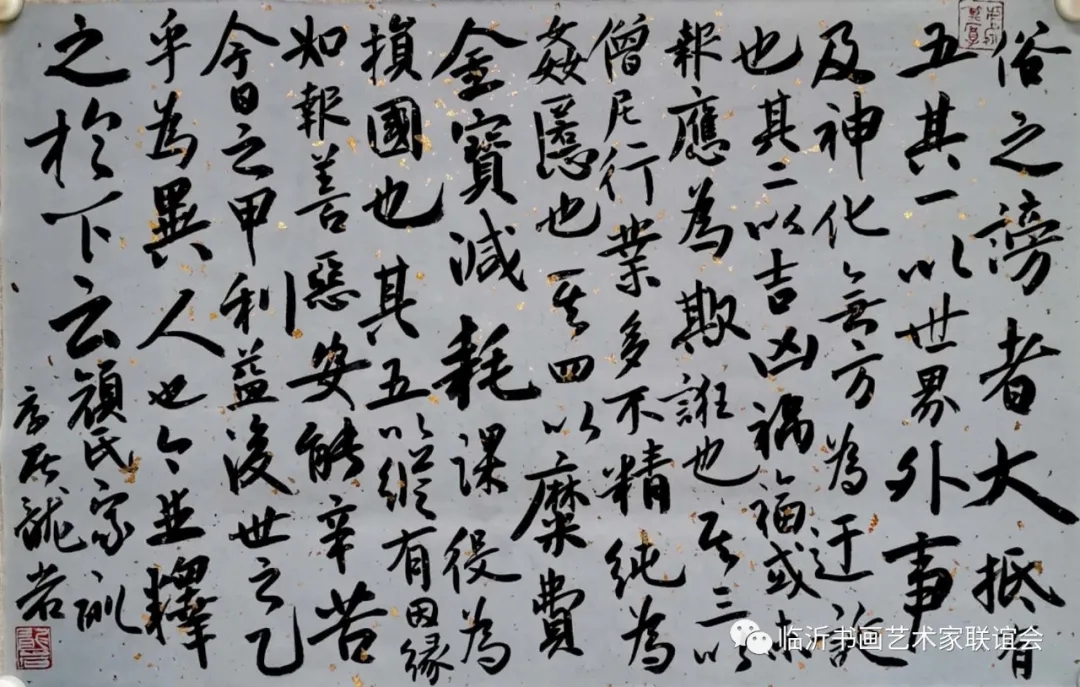 俗之謗者大抵有
五其一以世界外事
及神化無方為迂誕
也其二以吉凶禍福或未
報應為欺誑也其三以
僧尼行業多不精純為
姦慝也其四以糜費
金寶減耗課役為
損國也其五以縱有因緣
如報善惡安能辛苦
今日之甲利益後世之乙
乎為異人也今並釋
之於下云顏氏家訓
临沂书画艺术家联谊会